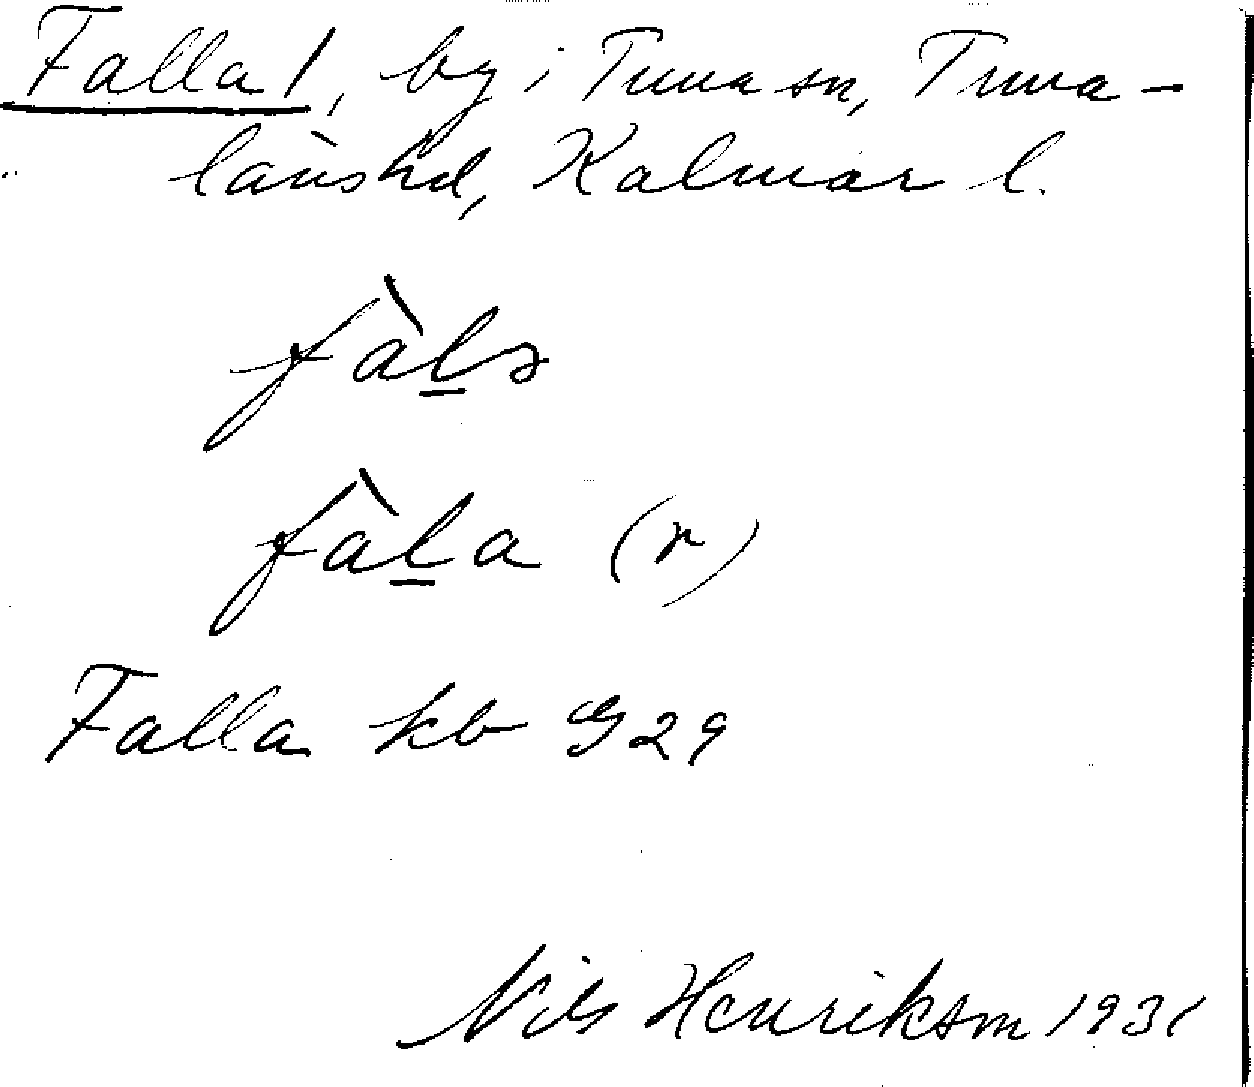 Falla 1, by i Tuna sn, Tuna-
läns hd, Kalmar l.
fàl̲ə
fàl̲a (r)
Falla kb G29
Nils Henrikson 1931